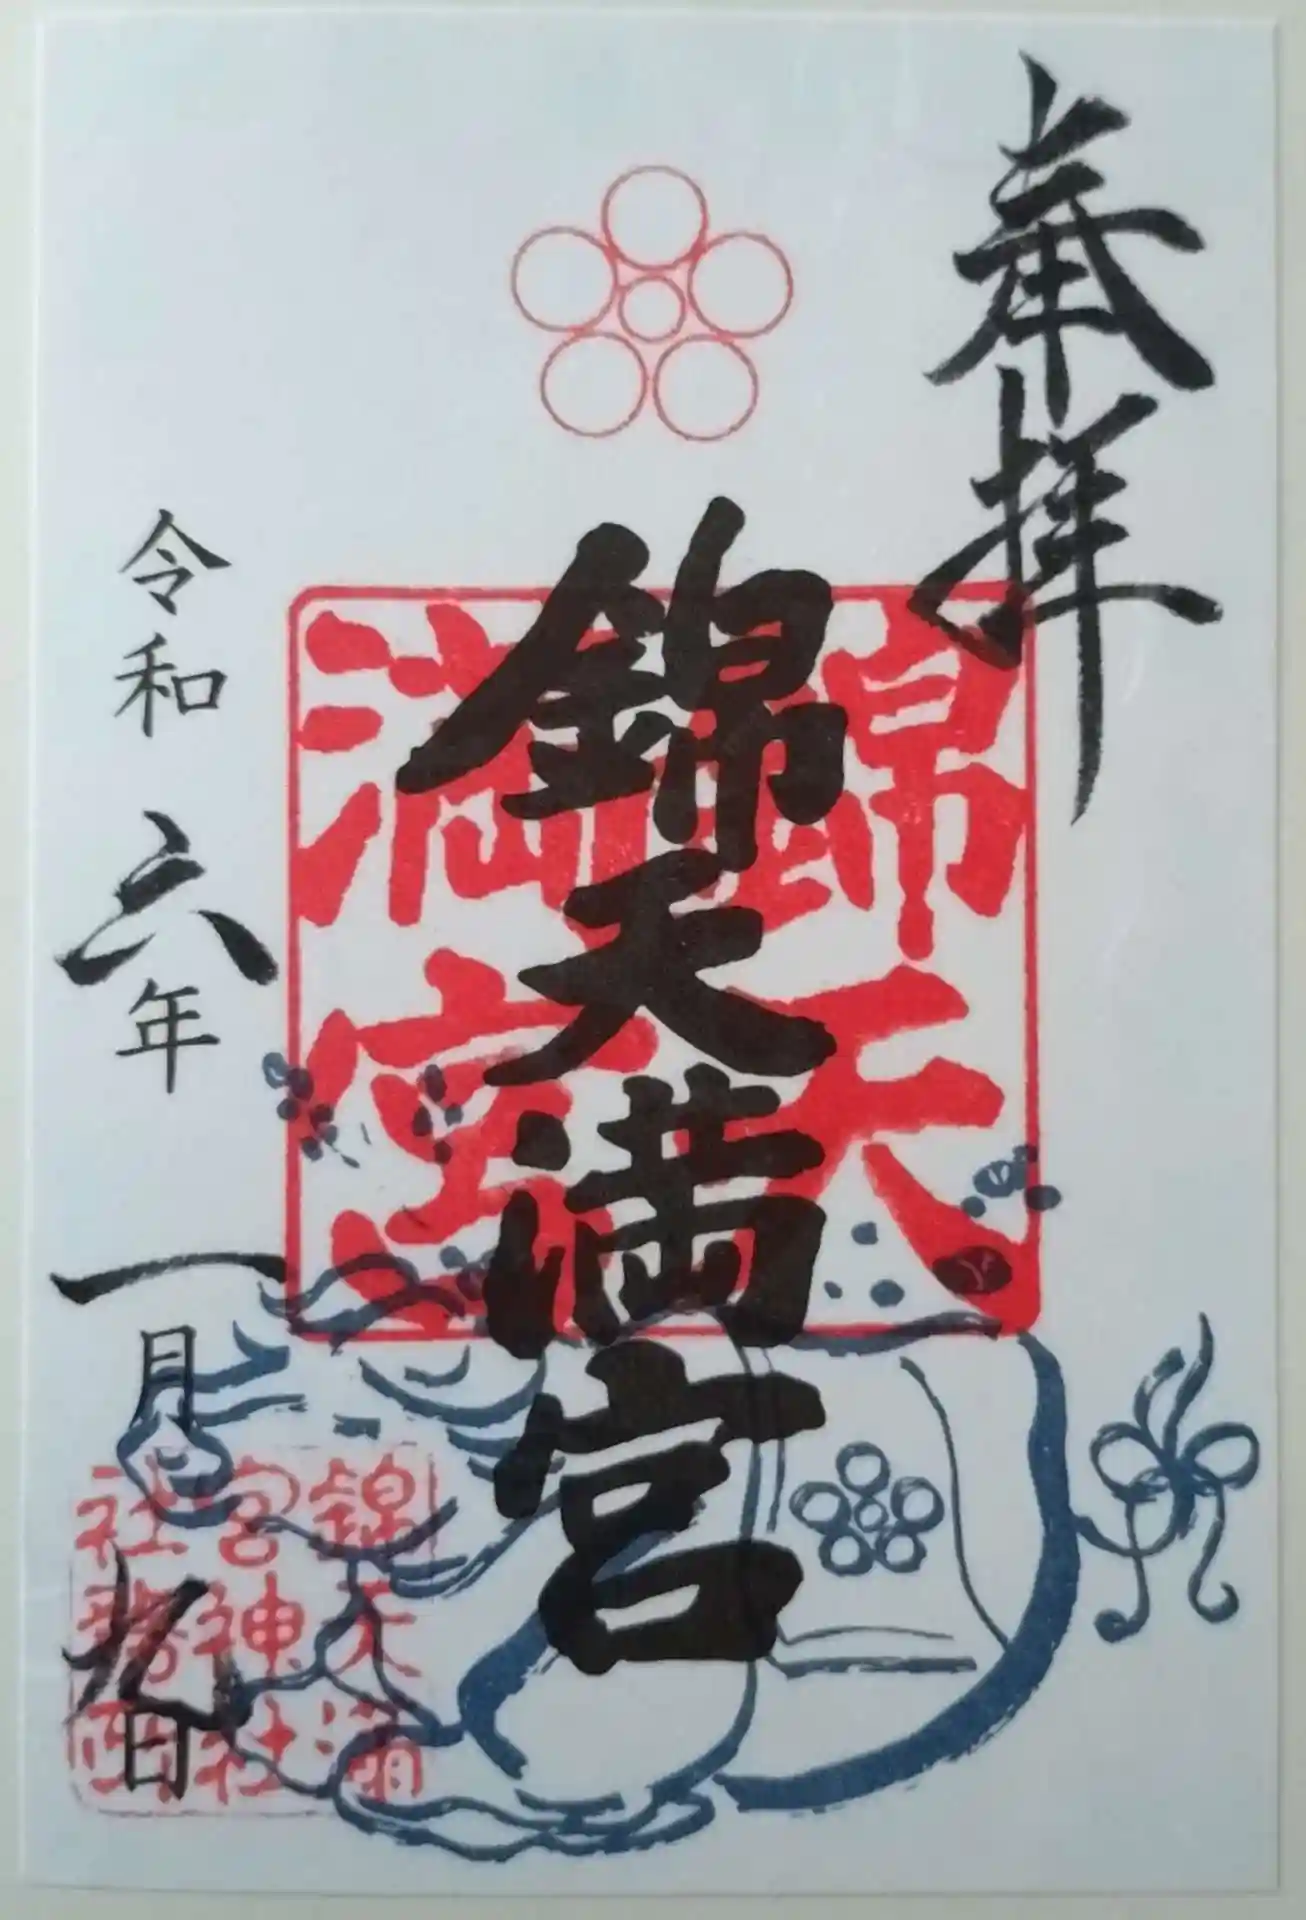 奉拝
錦天満宮
錦天
満宮
令和六年一月九日
錦天満
宮神社
社務所印